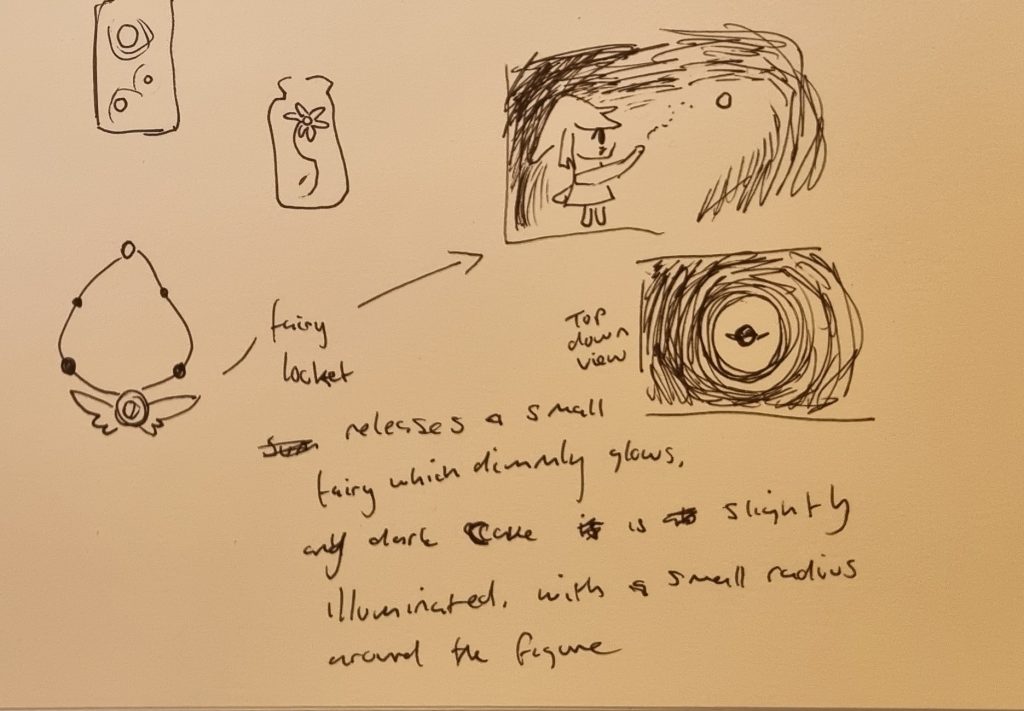 fairy
locket
Top
down
view
releases a small
fairy which dimmly glows,
any dark cave is slightly
illuminated, with a small radius
around the figure